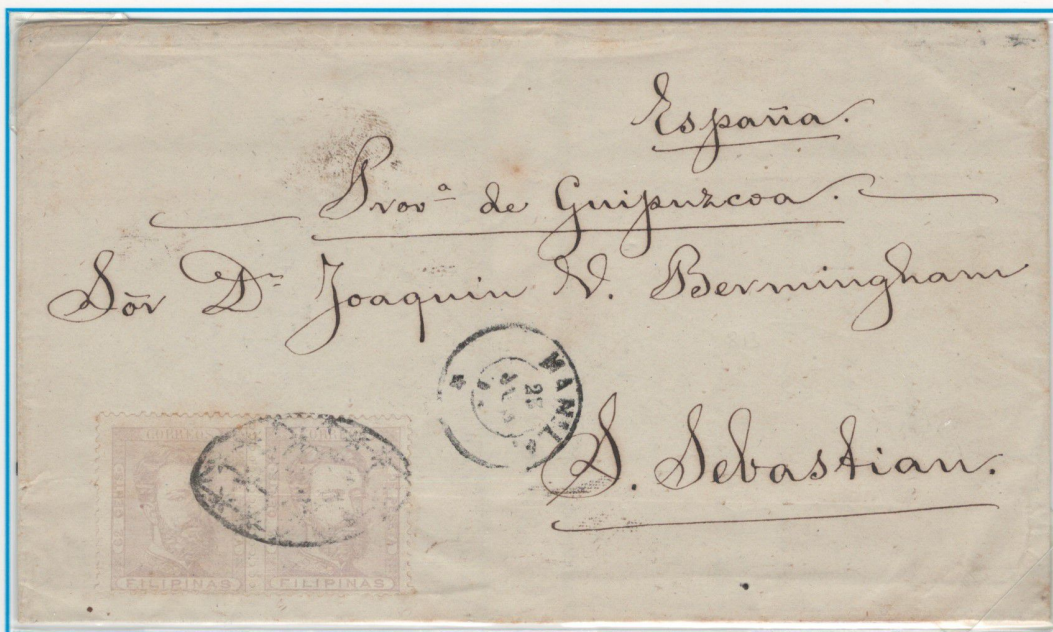 España.
Prov.ª de Guipuzcoa.
Sōr Dn Joaquin V. Bermingham
MANILA
S. Sebastian.
CORREOS
FILIPINAS FILIPINAS